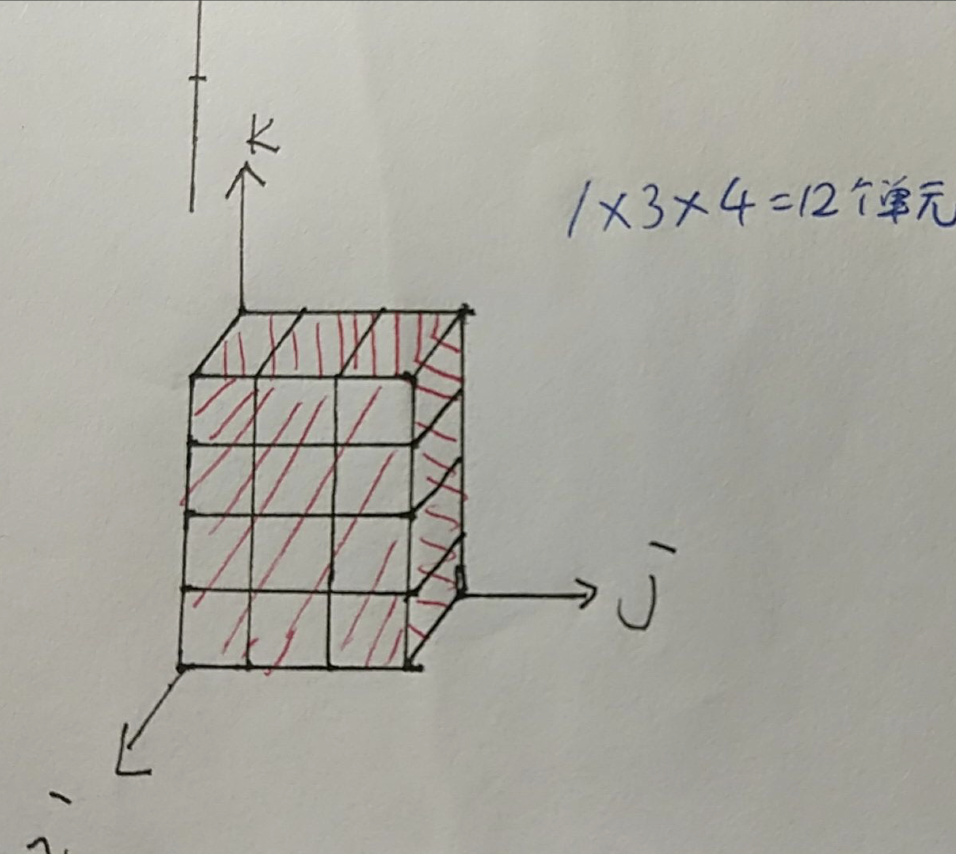 K
1×3×4=12个单元
j
i